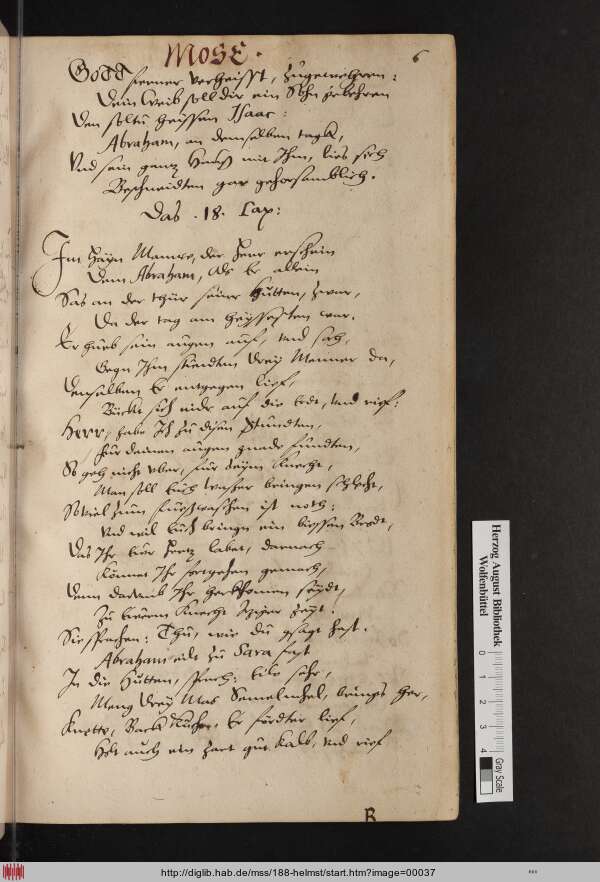 MOSE.
6
Gott ferner verheisst, zugewehren:
Dein Weib soll dir ein Sohn gebehren
Den soltu heyssen Isaac:
Abraham, an demselben tagk,
Vnd sein gantz Hauß mit Ihm, lies sich
Beschneidten gar gehorsamblich.
Das .18. Cap:
Im Hayn Mamre, der Herr erschein
Dem Abraham, als Er allein
Sas an der thür seiner Hutten, zwar,
Da der tag am heyssesten war.
Er hueb sein augen auf, vnd sah,
Gegn Ihm stundten drey Menner da,
Denselben Er entgegen lief,
Bückt sich nider auf die erdt, vnd rief:
Herr, habe Ich zu disen Stundten,
Für deinen augen gnade fundten,
So geh nicht vber, für deim Knecht,
Man soll Euch wasser bringen schlecht,
Soviel zum fueswaschen ist noth:
Vnd will Euch bringn ein bissen Brodt,
Das Ihr Eur Hertz labet, darnach
Könnet Ihr fortgehen gemach,
Denn darumb Ihr herkhomen seydt,
Zu Eurem Knecht zu diser Zeyt.
Sie sprachen: Thu, wie du gsagt hast.
Abraham eilt zu Sara fast
In die Hutten, sprach: Eile sehr,
Meng drey Mas Semelmehl, brings her,
Knette, Back Kuchen, Er fürdter lief,
Holt auch ein zart gut Kalb, vnd rief
B
Herzog August Bibliothek
Wolfenbüttel
0 1 2 3 4
Gray Scale
http://diglib.hab.de/mss/188-helmst/start.htm?image=00037